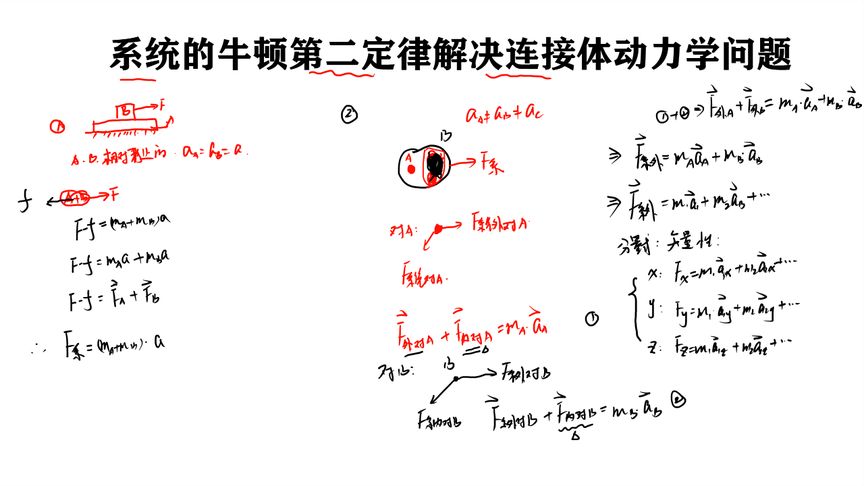 系统的牛顿第二定律解决连接体动力学问题
① B →F A
A.B.相对静止的. aA=aB=a.
f ← A+B → F
F-f=(mA+mB)a
F-f=mAa+mBa
F-f=F⃗A+F⃗B
∴ F系=(mA+mB)·a
② aA≠aB≠aC
A B → F系
对A: F系外对A
F系内对A.
F⃗外对A+F⃗内对A=mA·a⃗A ①
对B: B F系外对B
F系内对B F⃗系外对B+F⃗内对B=mB·a⃗B ②
①+②→F⃗外A+F⃗外B=mA·a⃗A+mB·a⃗B
⇒ F⃗系外=mAa⃗A+mB·a⃗B
⇒ F⃗系外=m₁a⃗₁+m₂a⃗₂+⋯
分量式: 矢量性:
x: Fx=m₁a⃗₁x+m₂a⃗₂x+⋯
y: Fy=m₁a⃗₁y+m₂a⃗₂y+⋯
z: Fz=m₁a⃗₁z+m₂a⃗₂z+⋯